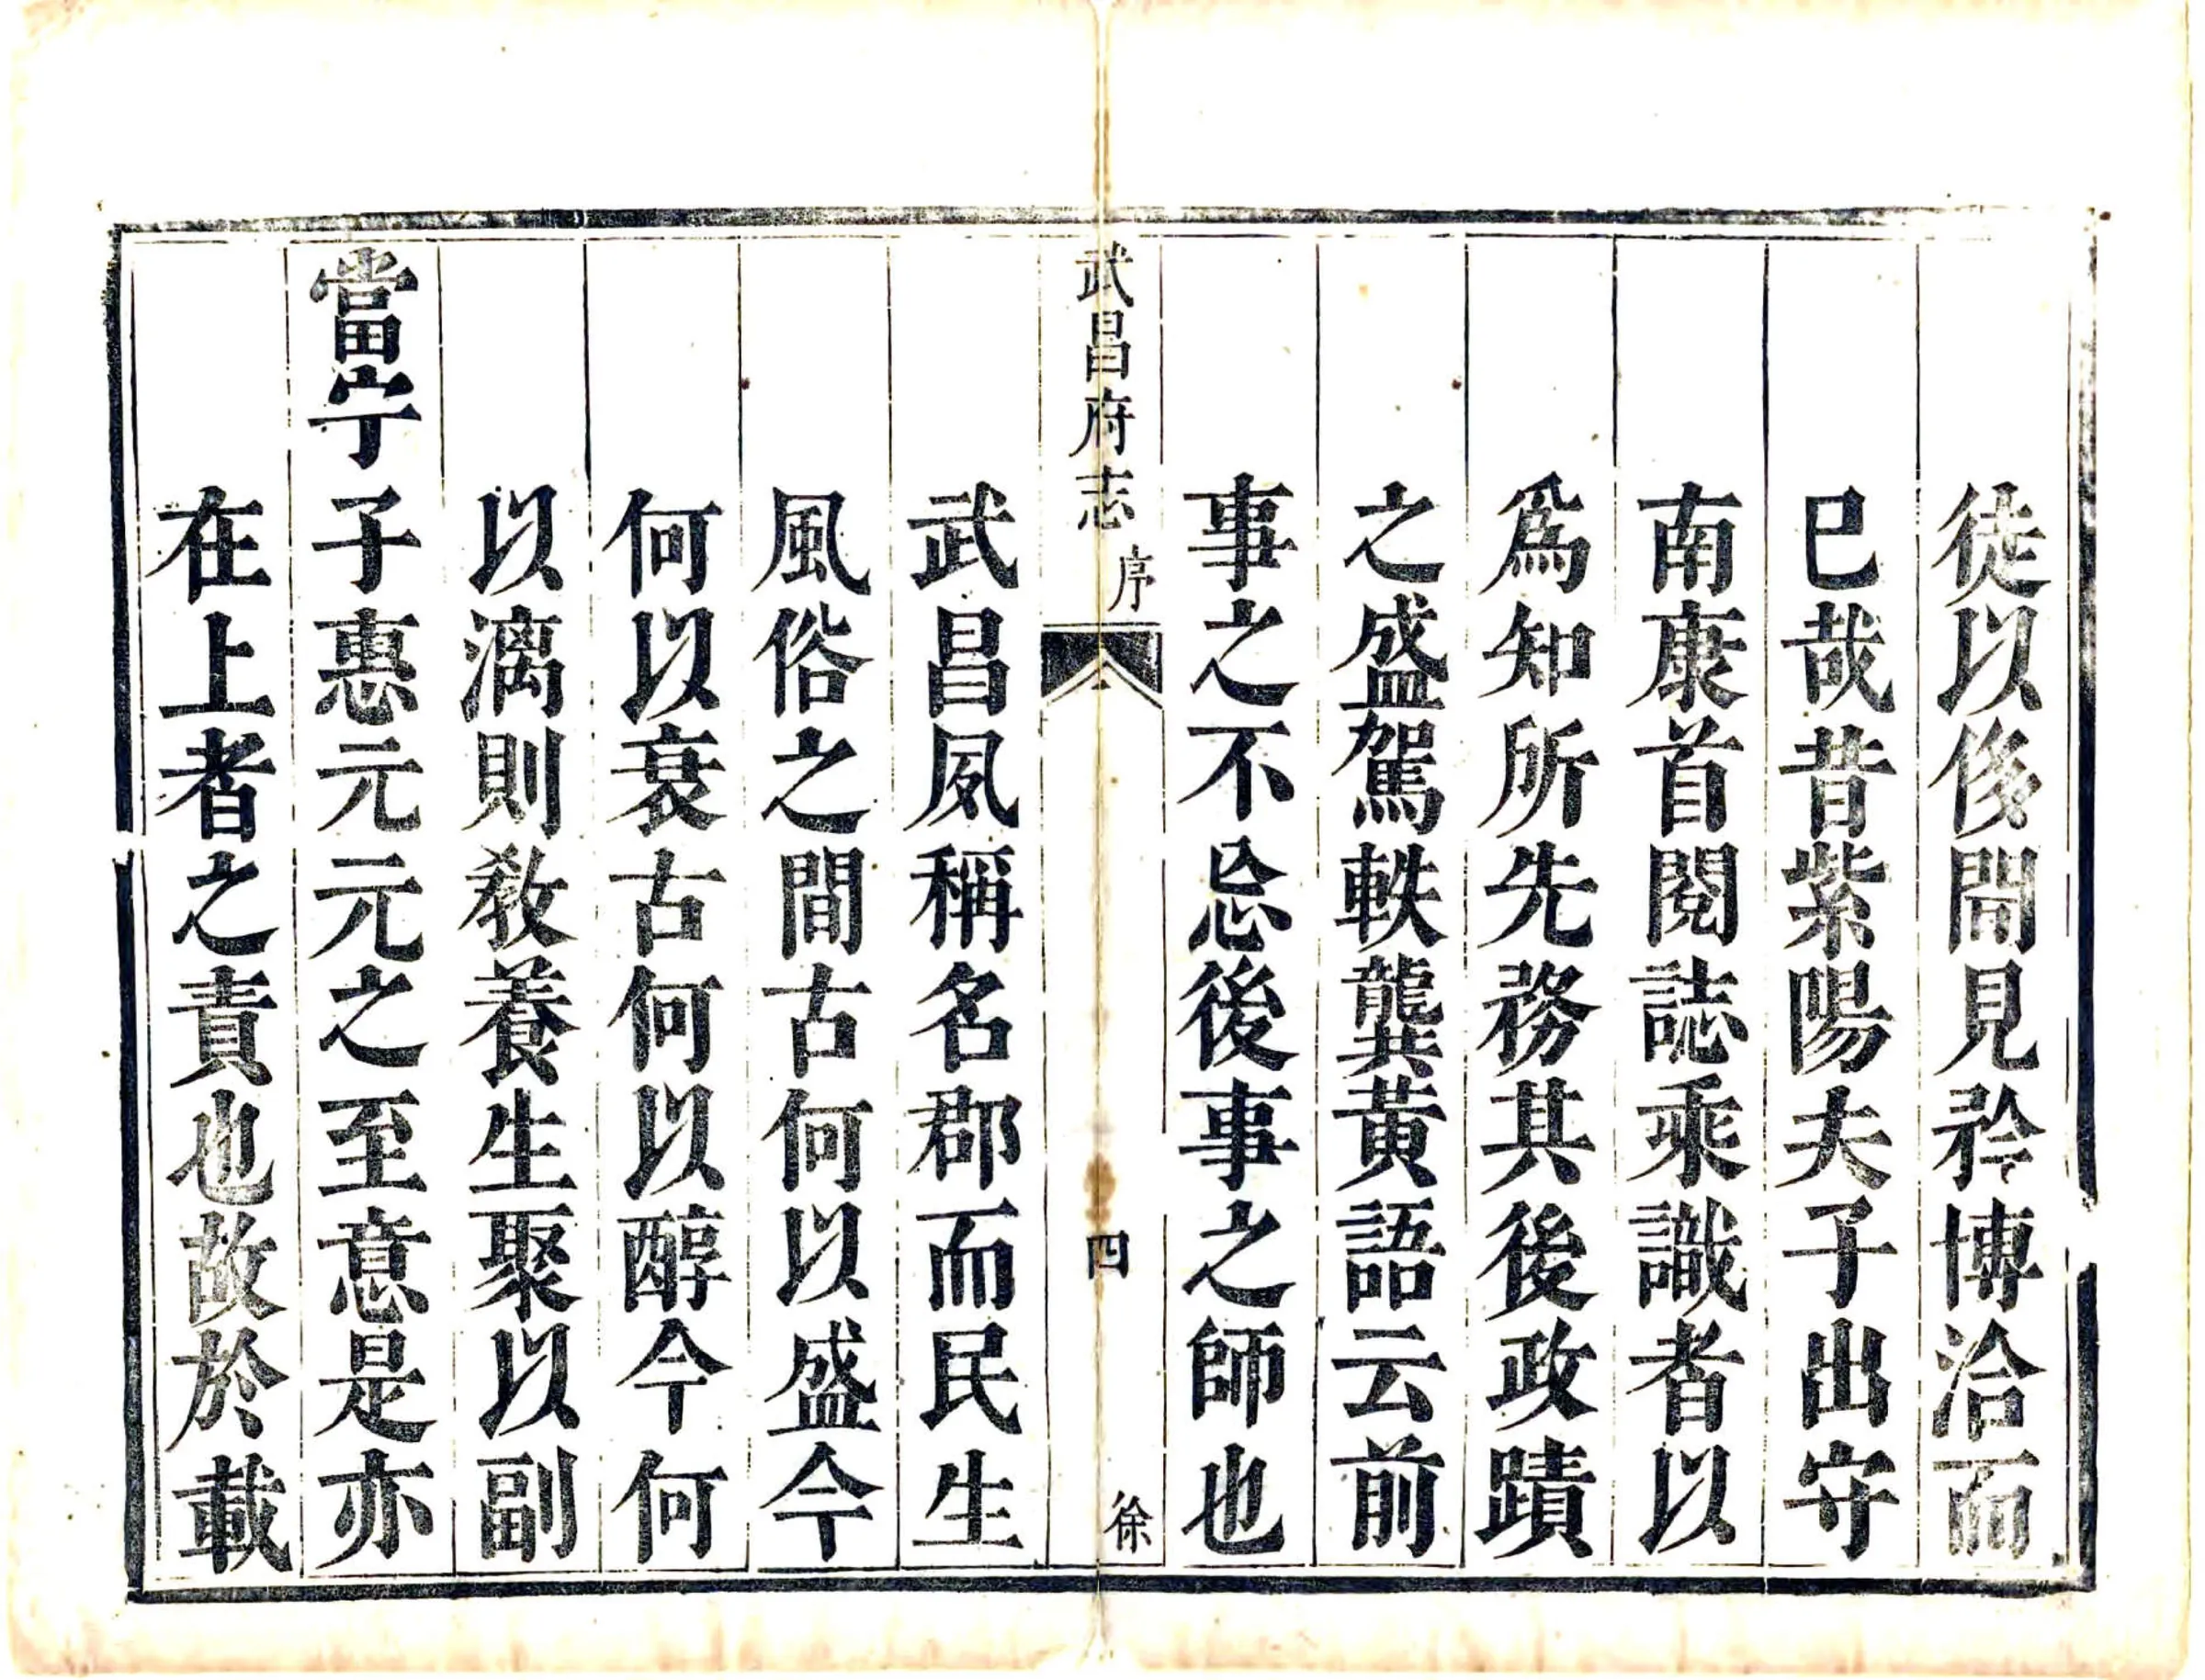 徒以侈聞見矜博洽而
已哉昔紫陽夫子出守
南康首閱誌乘識者以
爲知所先務其後政蹟
之盛駕軼龔黃語云前
事之不忘後事之師也
武昌府志 序 四 徐
武昌夙稱名郡而民生
風俗之間古何以盛今
何以衰古何以醇今何
以漓則教養生聚以副
當宁子惠元元之至意是亦
在上者之責也故於載